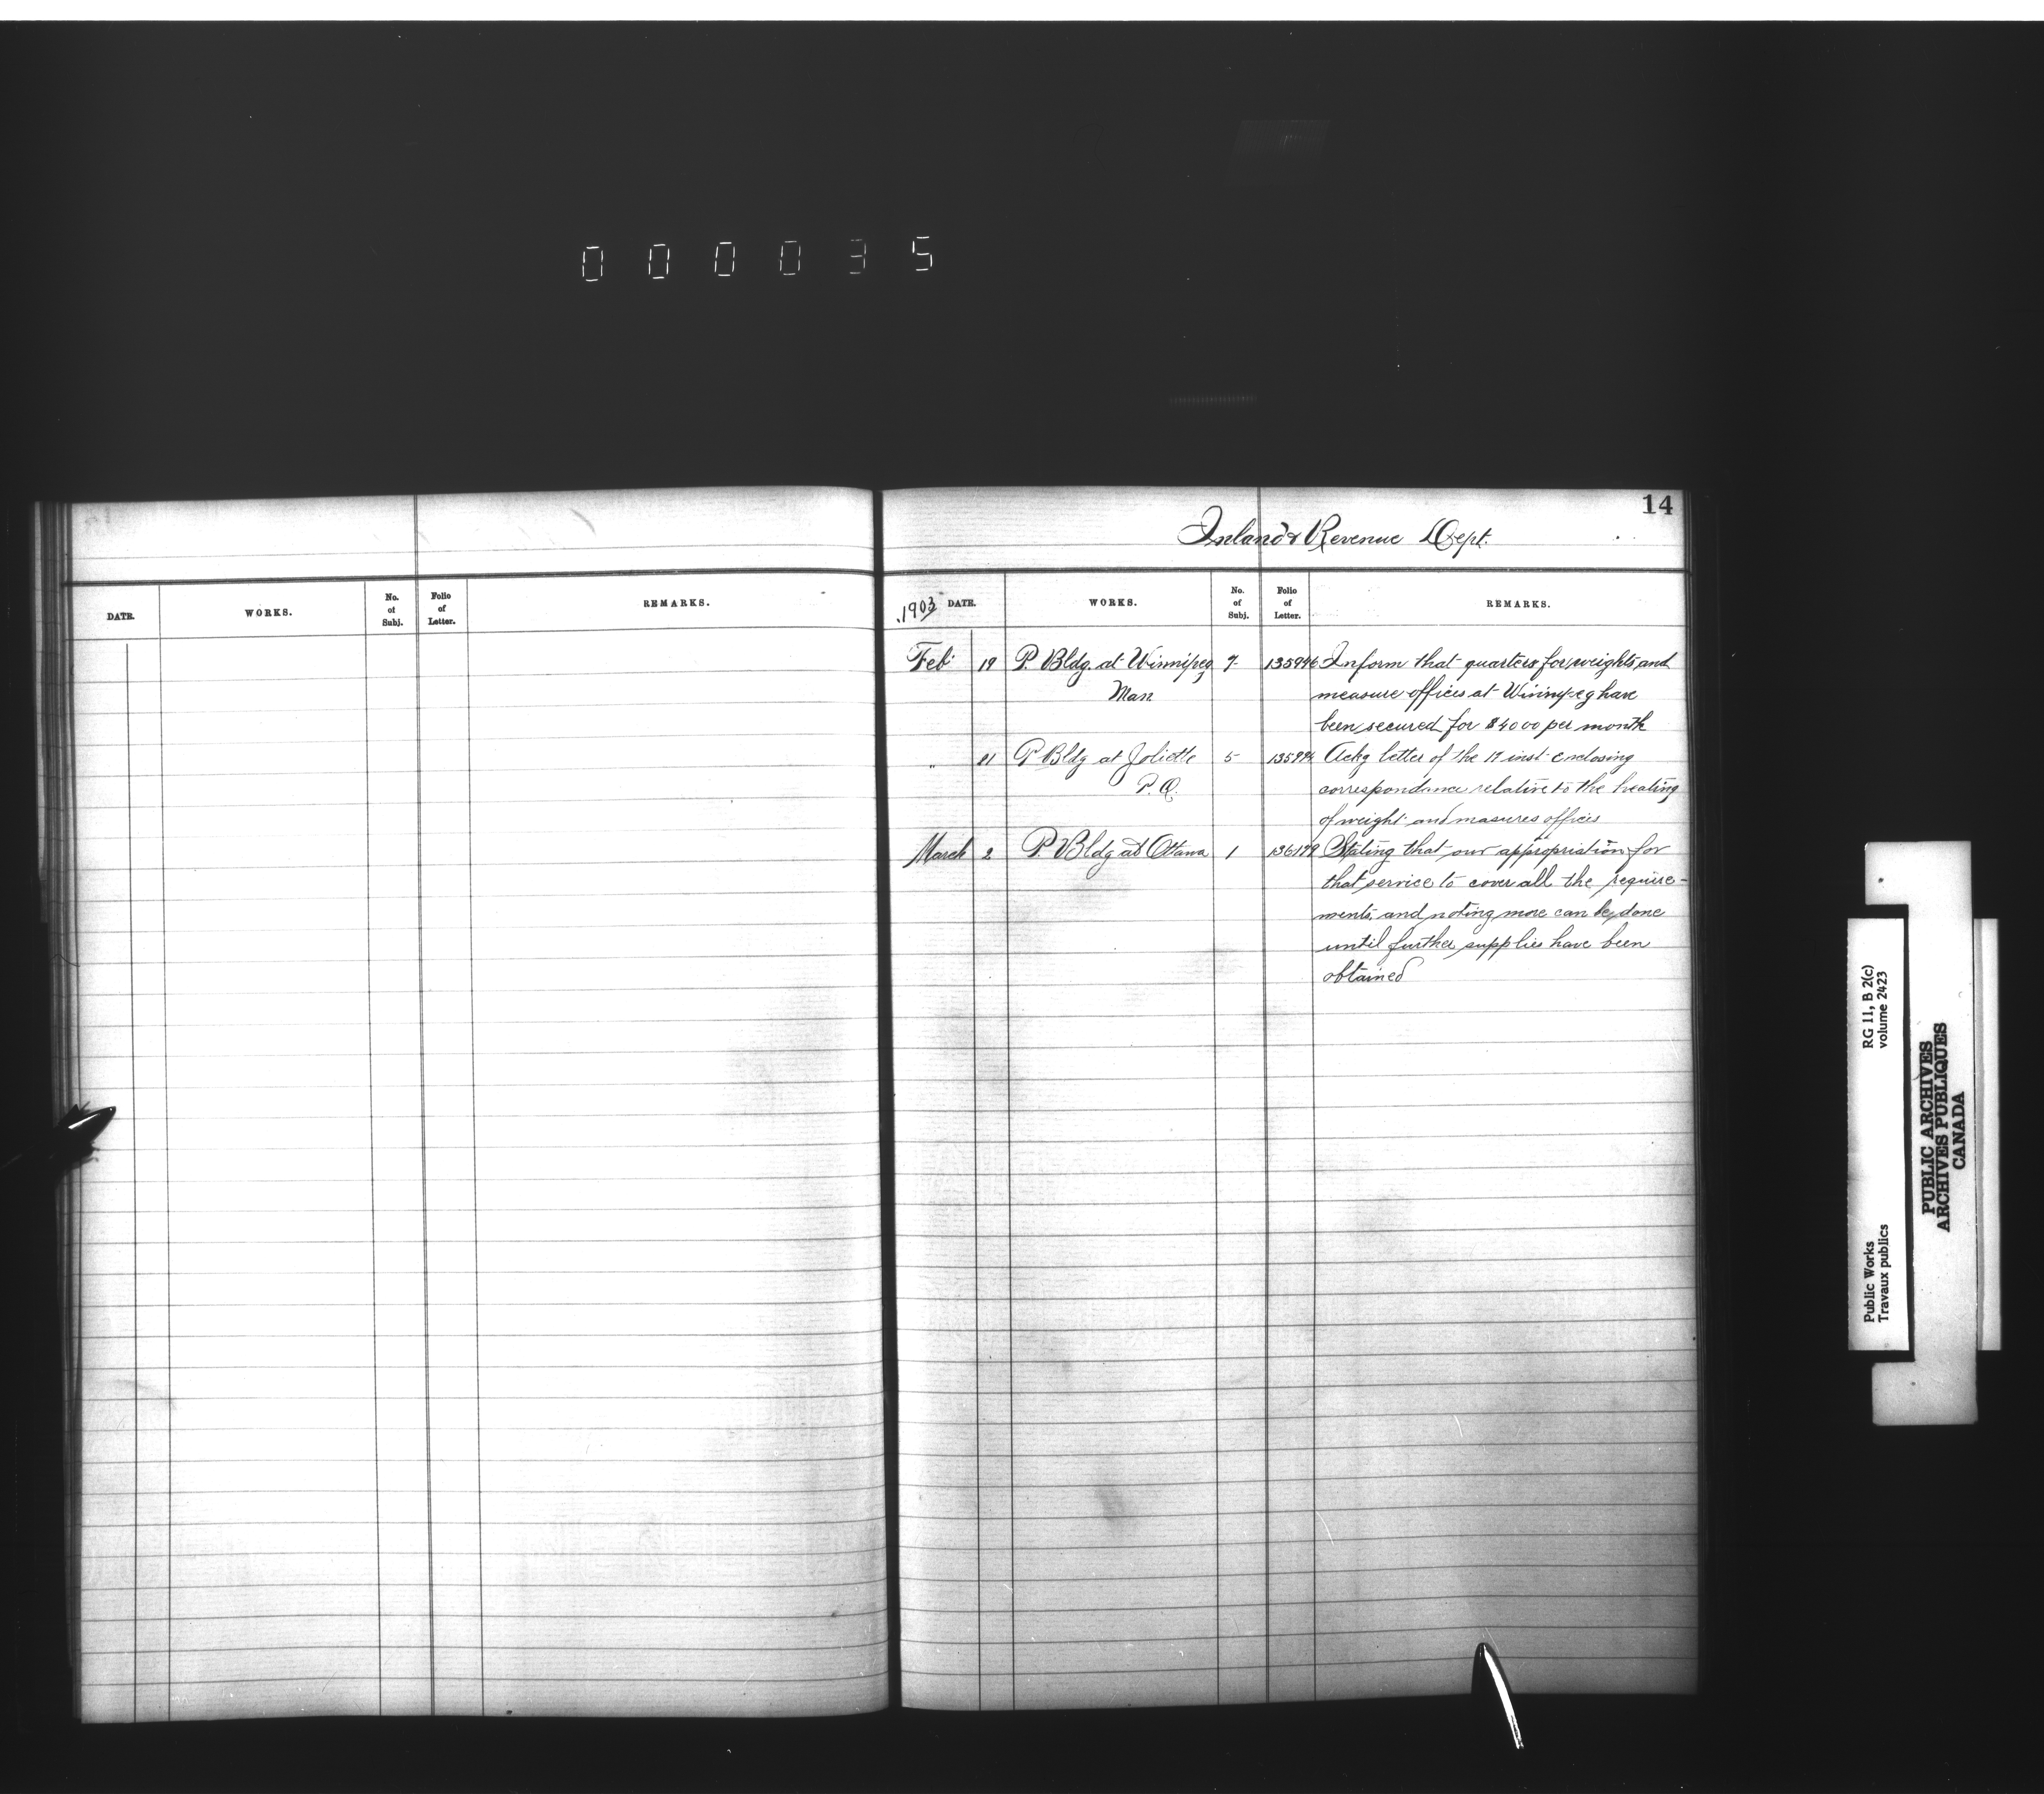 000035
14
Inland Revenue Dept.
DATE. WORKS. No. of Subj. Folio of Letter. REMARKS.
1903 DATE. WORKS. No. of Subj. Folio of Letter. REMARKS.
Feb 19 P. Bldg. at Winnipeg 7 135946 Inform that quarters for weights and
Man. measure offices at Winnipeg have
been secured for $4000 per month
" 21 P. Bldg at Joliette 5 Ackg letter of the 17 inst enclosing
P.Q. correspondance relative to the heating
of weight and masures offices
March 2 P. Bldg at Ottawa 1 136179 Stating that our appropriation for
that service to cover all the require-
ments, and noting more can be done
until further supplies have been
obtained
Public Works RG 11, B 2(c)
Travaux publics volume 2423
PUBLIC ARCHIVES
ARCHIVES PUBLIQUES
CANADA